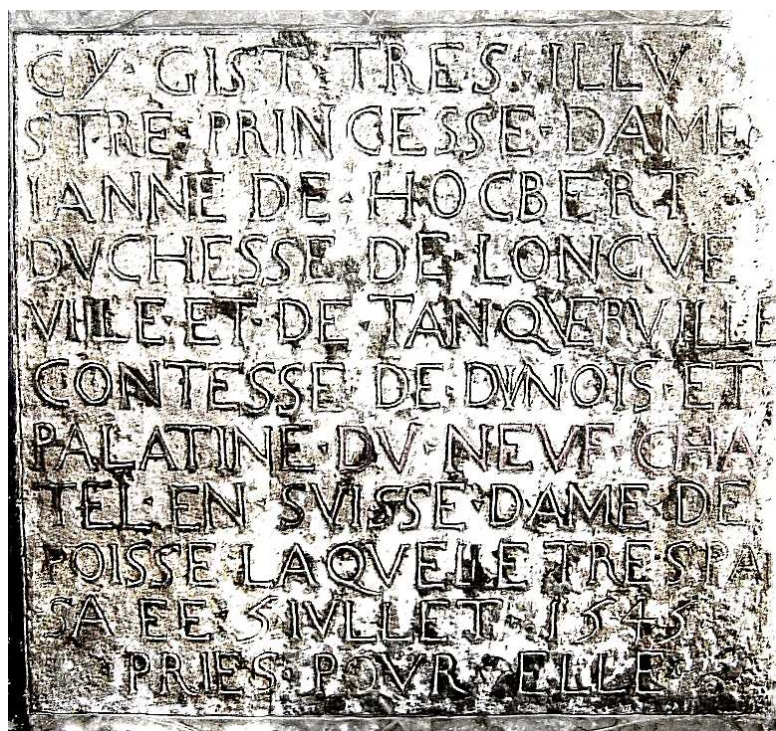 CY · GIST · TRES · ILLV
STRE PRINCESSE · DAME
IANNE DE · HOCBERT
DVCHESSE DE LONGVE
VILLE · ET · DE · TANQVERVILLE
CONTESSE DE · DVNOIS · ET
PALATINE · DV · NEVF · CHA
TEL · EN SVISSE · DAME DE
POISSE LAQVELLE TRESPA
SA EE 5 IVLLET 1545
PRIES · POVR ELLE